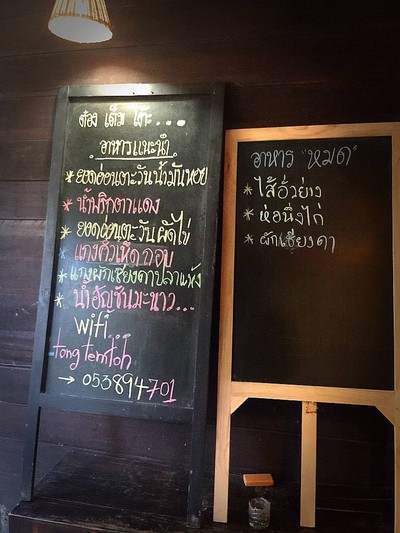 ต๋อง เต็ม โต๊ะ...
อาหารแนะนำ
* ยอดอ่อนตะวันน้ำมันหอย
* น้ำพริกตาแดง
* ยอดอ่อนตะวันผัดไข่
* แกงคั่วเห็ดถอบ
* แกงผักเชียงดาปลาแห้ง
* น้ำอัญชันมะนาว...
wifi
tong temtoh
→ 053894701
อาหาร "หมด"
* ไส้อั่วย่าง
* ห่อนึ่งไก่
* ผักเชียงดา